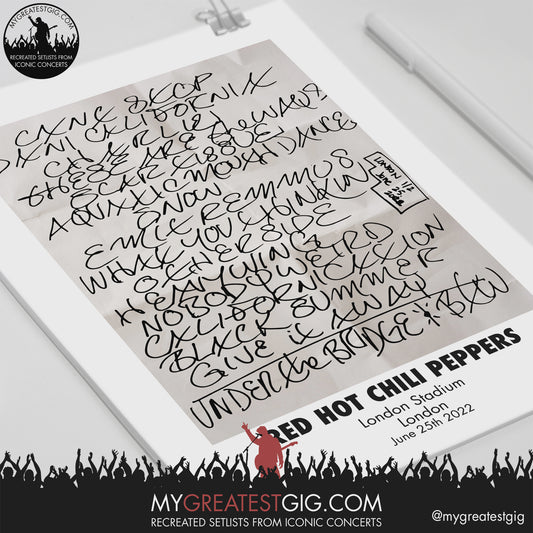 MYGREATESTGIG.COM
RECREATED SETLISTS FROM
ICONIC CONCERTS
CANT STOP
DANI CALIFORNIA
CHARLIE
THESE ARE the WAYS
SCAR TISSUE
AQUATIC MOUTH DANCE
SNOW
EMIT REMMUS
WHAT YOU THINKIN
OTHERSIDE
HEAVY WING
NOBODY WEIRD
CALIFORNICATION
BLACK SUMMER
GIVE it AWAY
UNDER the BRIDGE & BTW
LONDON
RED HOT CHILI PEPPERS
London Stadium
London
June 25th 2022
MYGREATESTGIG.COM
RECREATED SETLISTS FROM ICONIC CONCERTS
@mygreatestgig